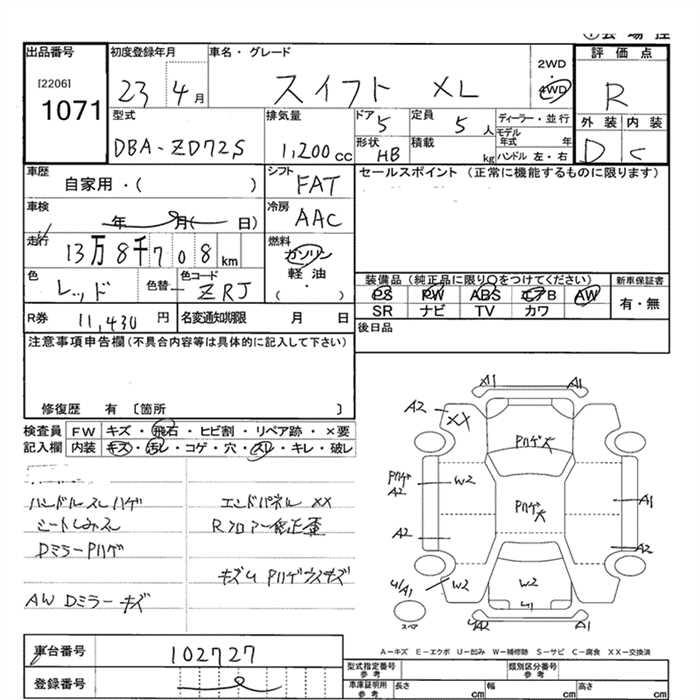 出品番号
[2206]
1071
初度登録年月
23 4月
車名・グレード
スイフト XL
2WD
4WD
評価点
R
外装 内装
D C
型式
DBA-ZD72S
排気量
1,200cc
ドア
5
定員
5人
形状
HB
積載
kg
ディーラー・並行
モデル年式 年
ハンドル 左・右
車歴
自家用・( )
シフト
FAT
セールスポイント (正常に機能するものに限ります)
車検
年 月( 日)
冷房
AAC
走行
13万8千708km
燃料
ガソリン
軽油
( )
色
レッド
色替
色コード
ZRJ
装備品 (純正品に限り○をつけてください)
PS PW ABS エアB AW
SR ナビ TV カワ
新車保証書
有・無
R券 11,430円
名変通知期限 月 日
後日品
注意事項申告欄 (不具合内容等は具体的に記入して下さい)
修復歴 有 〔箇所 〕
検査員記入欄
FW キズ・飛石・ヒビ割・リペア跡・×要
内装 キズ・汚レ・コゲ・穴・スレ・キレ・破レ
ハンドルスレハゲ
シートしみスレ
DミラーPハゲ
AW Dミラーキズ
エンドパネル XX
Rフロアー修正歪
キズU Pハゲウスキズ
A1
A1
A2
XX
Pハゲ大
Pハゲ
A2
W2
Pハゲ大
A1
A2
A2
U/A1
W2
W2
U1
U/A2
A1
スペア
A－キズ E－エクボ U－凹み W－補修跡 S－サビ C－腐食 XX－交換済
車台番号
102727
登録番号
型式指定番号
参考
類別区分番号
参考
車庫証明用
参考
長さ cm
幅 cm
高さ cm